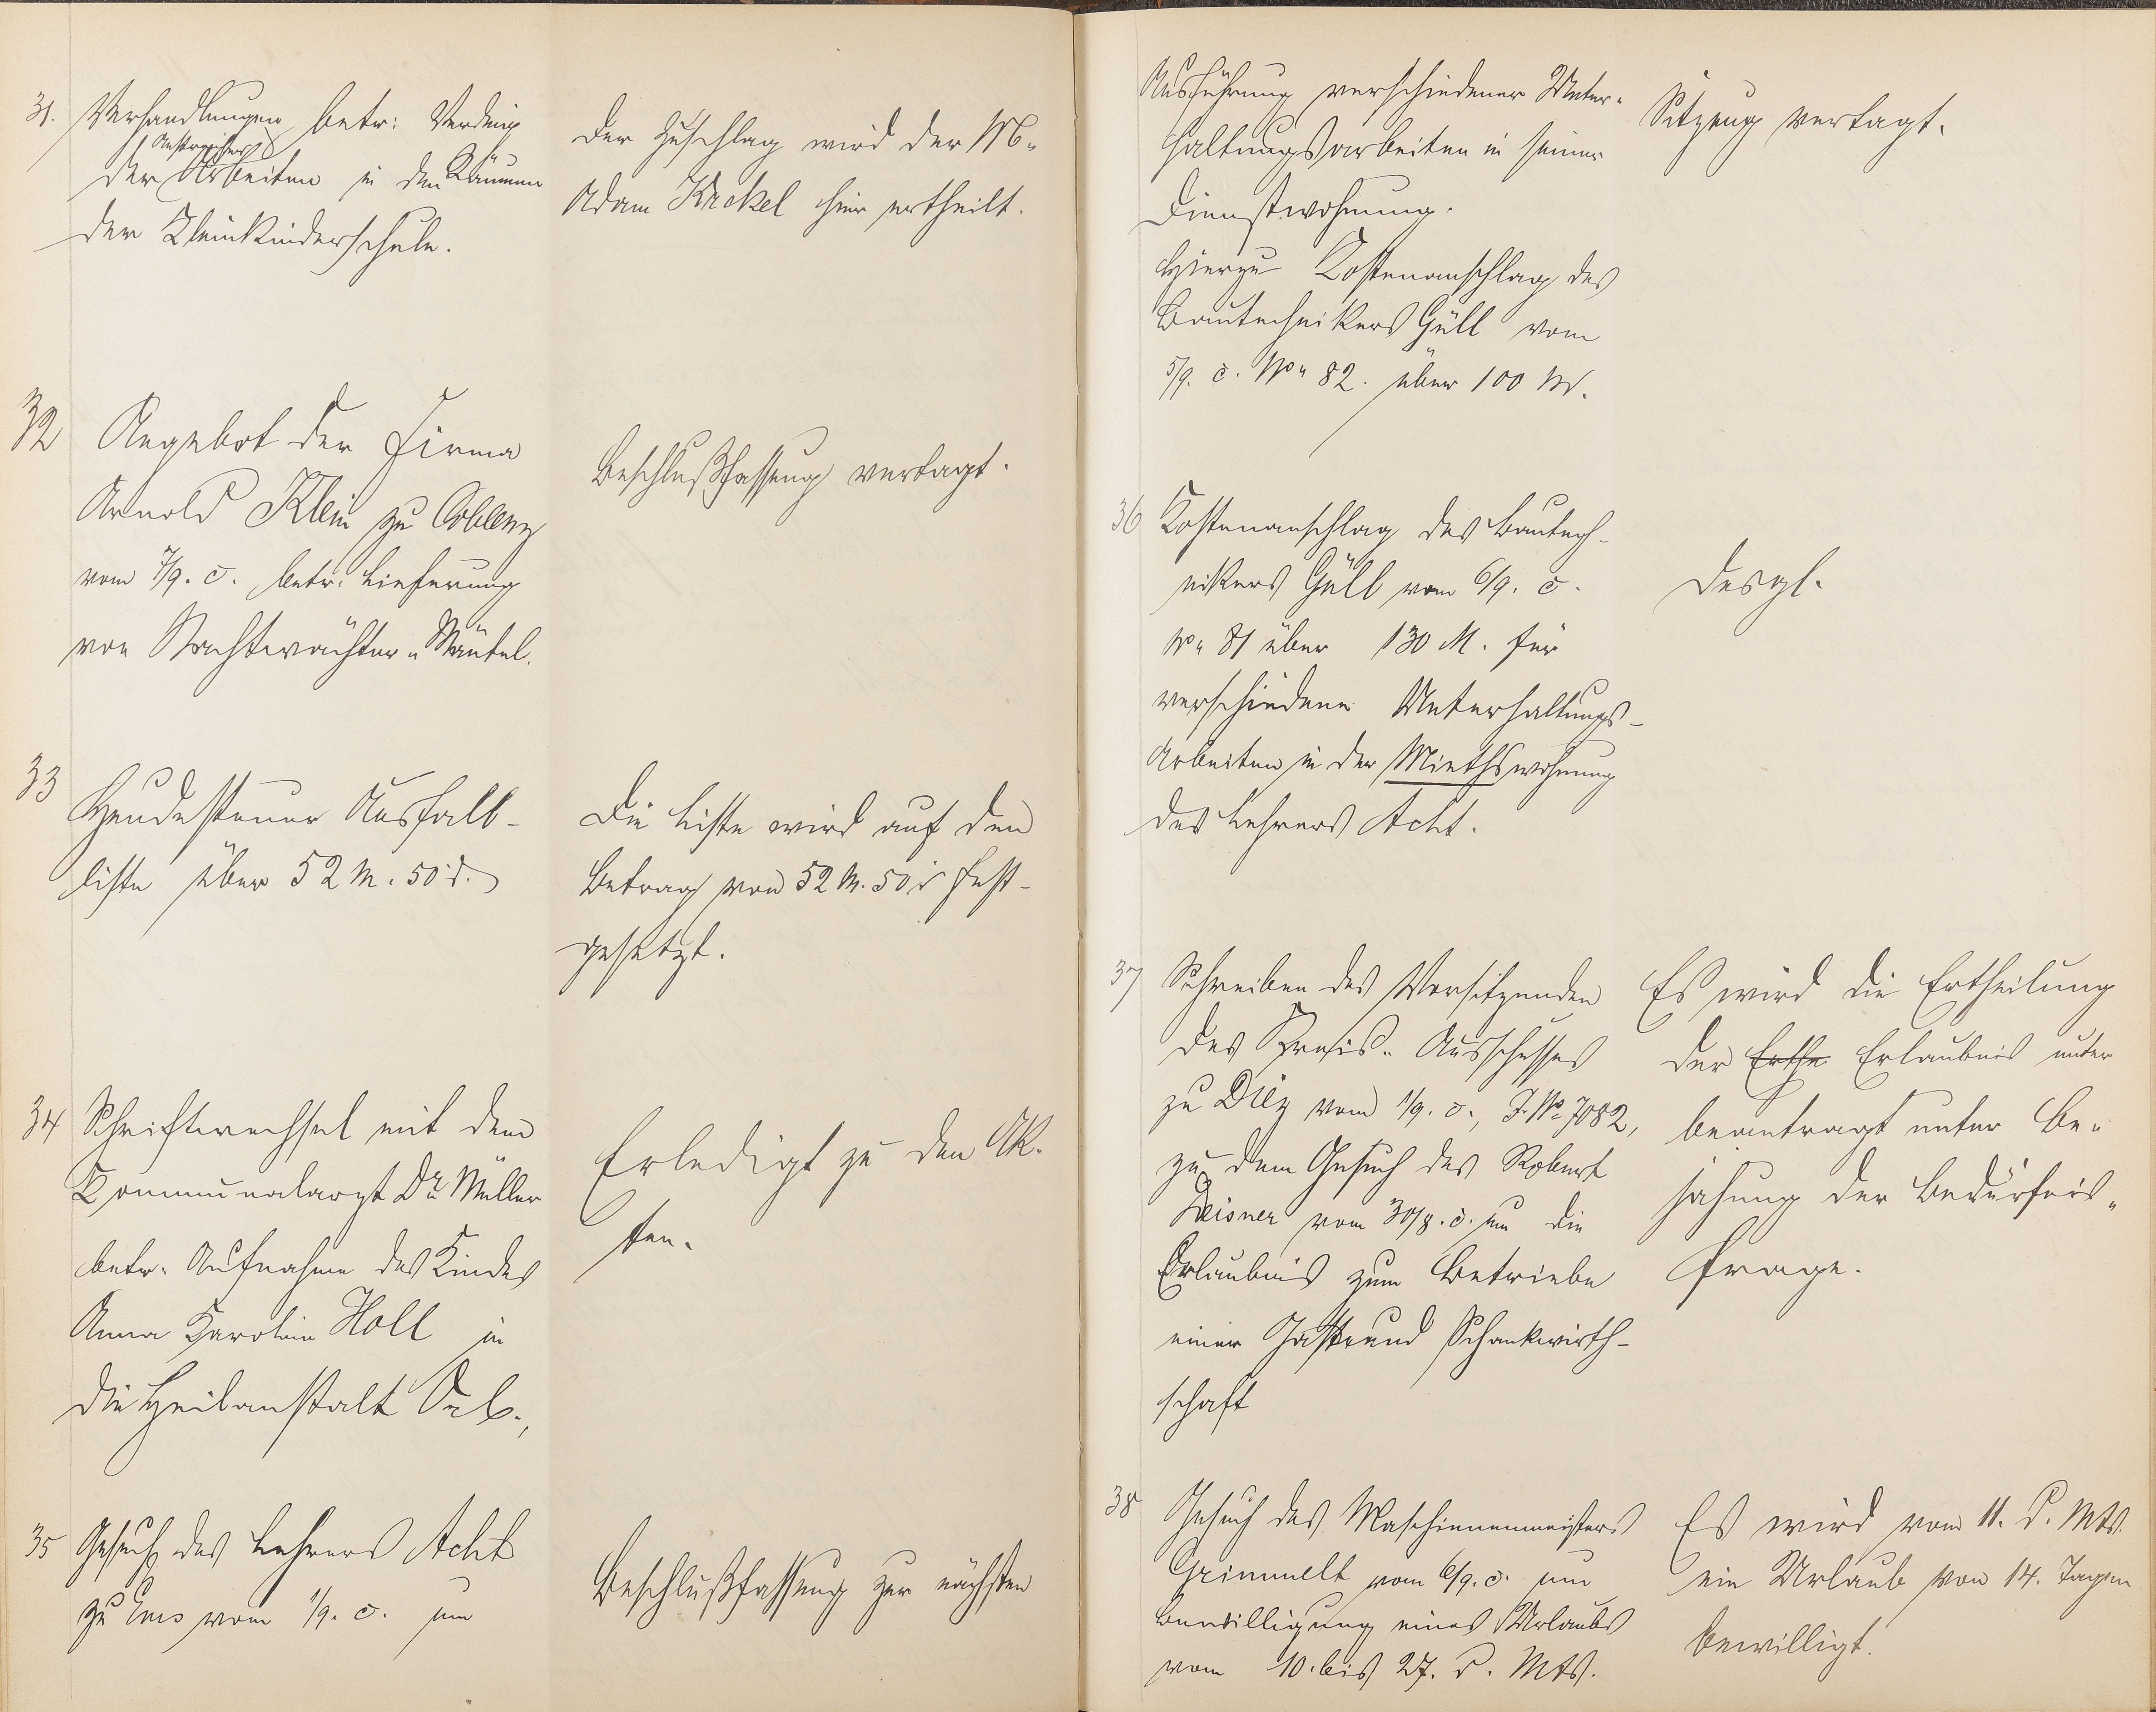 31. Verhandlungen betr: Verding
der Anstreicher Arbeiten in den Räumen
der Kleinkinderschule.
Der Zuschlag wird der W.
Adam Kackel hier ertheilt.
32 Angebot der Firma
Arnold Klein zu Coblenz
vom 7/9. c. betr: Lieferung
von Nachtwächter-Mäntel.
Beschlußfassung vertagt.
33 Hundesteuer Ausfall-
liste über 52 M. 50 d.
Die Liste wird auf den
Betrag von 52 M. 50 d fest-
gesetzt.
34 Schriftwechsel mit dem
Kommunalarzt Dr. Müller
betr. Aufnahme des Kindes
Anna Karolina Holl in
die Heilanstalt Orb.,
Erledigt zu den Ak-
ten.
35 Gesuch des Lehrers Acht
zu Ems vom 1/9. c. um
Beschlußfassung zur nächsten
Ausführung verschiedener Unter-
haltungsarbeiten in seiner
Dienstwohnung.
Hierzu Kostenanschlag des
Bautechnikers Güll vom
5/9. c. No 82. über 100 M.
Sitzung vertagt.
36 Kostenanschlag des Bautech-
nikers Güll vom 6/9. c.
No 81 über 130 M. für
verschiedene Unterhaltungs-
Arbeiten in der Miethswohnung
des Lehrers Acht.
Desgl.
37 Schreiben des Vorsitzenden
des Kreis-Ausschusses
zu Diez vom 1/9. c., J. No 7082,
zu dem Gesuch des Robert
Deisner vom 30/8. c. um die
Erlaubnis zum Betriebe
einer Gast- und Schankwirth-
schaft
Es wird die Ertheilung
der Erthe Erlaubnis unter
beantragt unter Be-
jahung der Bedürfnis-
frage.
38 Gesuch des Maschinenmeisters
Grimmelt vom 6/9. c. um
Bewilligung eines Urlaubs
vom 10. bis 27. d. Mts.
Es wird vom 11. d. Mts.
ein Urlaub von 14. Tagen
bewilligt.